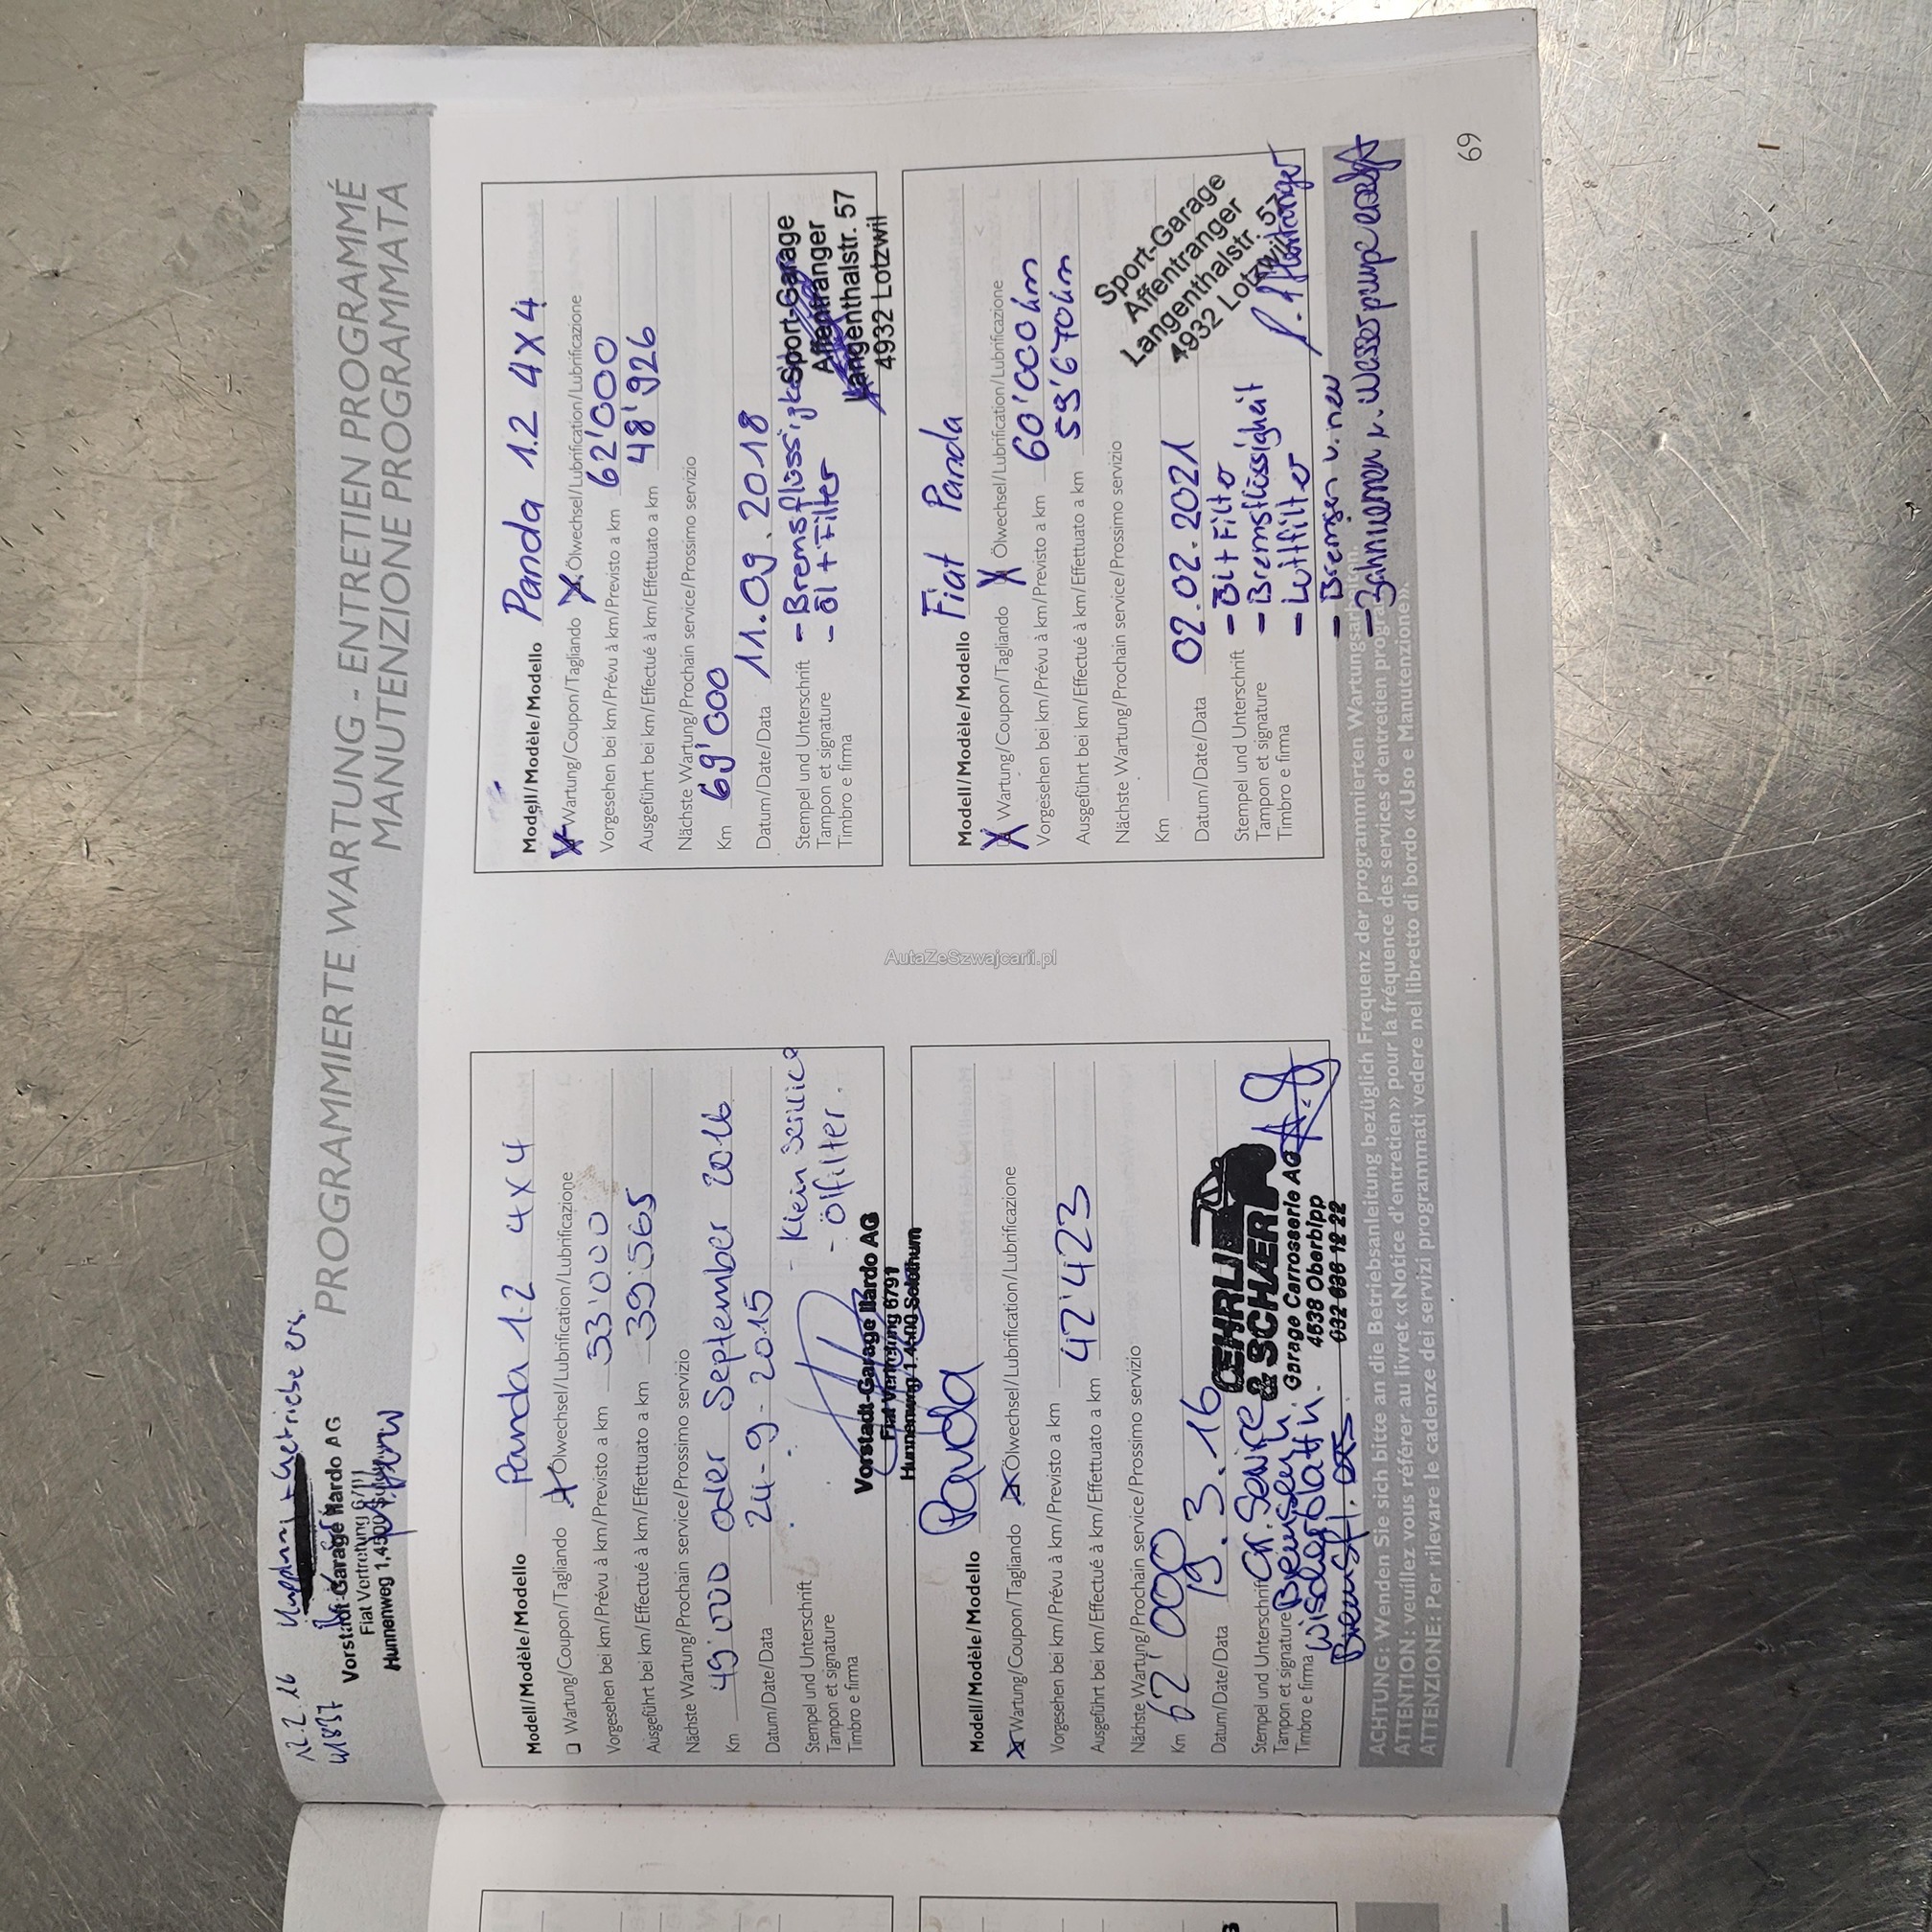 12.2.16
41837
Vorstadt-Garage Ilardo AG
Fiat Vertretung 6711
Hunnenweg 1, 4500
PROGRAMMIERTE WARTUNG - ENTRETIEN PROGRAMMÉ
MANUTENZIONE PROGRAMMATA
Modell/Modèle/Modello Panda 1.2 4x4
Wartung/Coupon/Tagliando Ölwechsel/Lubrification/Lubrificazione
Vorgesehen bei km/Prévu à km/Previsto a km 53'000
Ausgeführt bei km/Effectué à km/Effettuato a km 39'565
Nächste Wartung/Prochain service/Prossimo servizio
Km 49'000 oder September 2016
Datum/Date/Data 24-9-2015
Stempel und Unterschrift
Tampon et signature
Timbro e firma
- Klein service
- Ölfilter.
Vorstadt-Garage Ilardo AG
Fiat Vertretung 6791
Hunnenweg 1.4500 Solothurn
Modell/Modèle/Modello Panda
Wartung/Coupon/Tagliando Ölwechsel/Lubrification/Lubrificazione
Vorgesehen bei km/Prévu à km/Previsto a km
Ausgeführt bei km/Effectué à km/Effettuato a km 42'423
Nächste Wartung/Prochain service/Prossimo servizio
Km 62'000
Datum/Date/Data 19.3.16
Stempel und Unterschrift Gr. Service
Tampon et signature
Timbro e firma
OEHRLI
& SCHÄER
Garage Carrosserie AG
4538 Oberbipp
032 636 12 22
Modell/Modèle/Modello Panda 1.2 4x4
Wartung/Coupon/Tagliando Ölwechsel/Lubrification/Lubrificazione
Vorgesehen bei km/Prévu à km/Previsto a km 62'000
Ausgeführt bei km/Effectué à km/Effettuato a km 48'926
Nächste Wartung/Prochain service/Prossimo servizio
Km 69'000
Datum/Date/Data 11.09.2018
Stempel und Unterschrift - Bremsflüssigkeit
Tampon et signature - öl + Filter
Timbro e firma
Sport-Garage
Affentranger
Langenthalstr. 57
4932 Lotzwil
Modell/Modèle/Modello Fiat Panda
Wartung/Coupon/Tagliando Ölwechsel/Lubrification/Lubrificazione
Vorgesehen bei km/Prévu à km/Previsto a km 60'000 km
Ausgeführt bei km/Effectué à km/Effettuato a km 59'670 km
Nächste Wartung/Prochain service/Prossimo servizio
Km
Datum/Date/Data 02.02.2021
Stempel und Unterschrift - Öl + Filter
Tampon et signature - Bremsflüssigkeit
Timbro e firma - Luftfilter
- Bremsen v. neu
- Zahnriemen u. Wasserpumpe ersetzt
Sport-Garage
Affentranger
Langenthalstr. 57
4932 Lotzwil
P. Affentranger
ACHTUNG: Wenden Sie sich bitte an die Betriebsanleitung bezüglich Frequenz der programmierten Wartungsarbeiten.
ATTENTION: veuillez vous référer au livret «Notice d'entretien» pour la fréquence des services d'entretien
ATTENZIONE: Per rilevare le cadenze dei servizi programmati vedere nel libretto di bordo «Uso e Manutenzione».
69
AutaZeSzwajcarii.pl